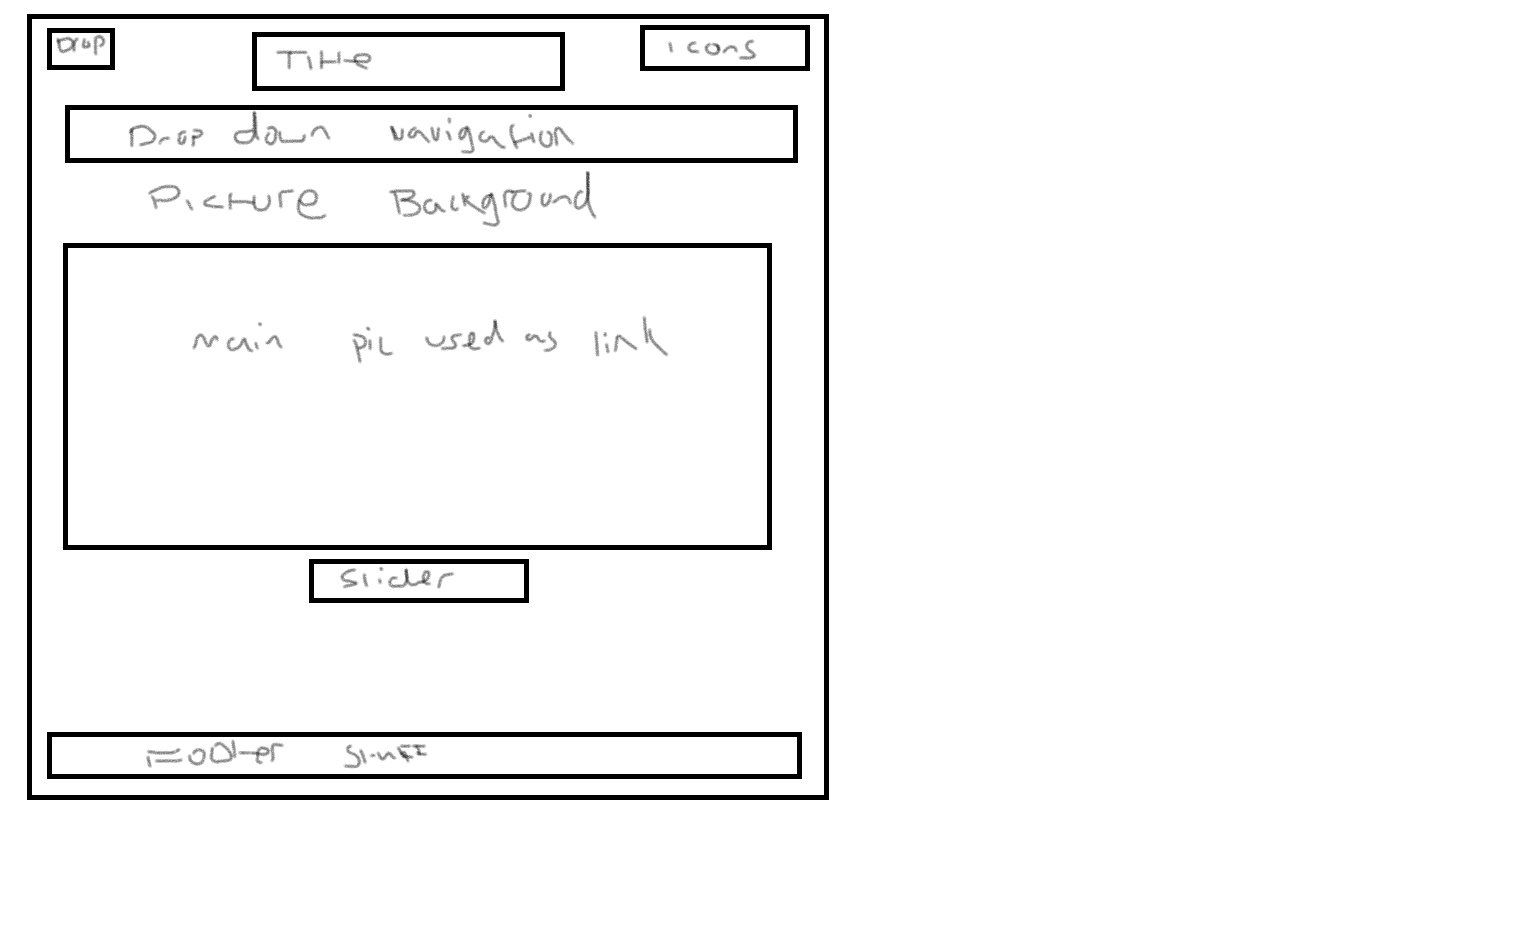 Drop
Title
icons
Drop down navigation
Picture Background
main pic used as link
Slider
Footer stuff